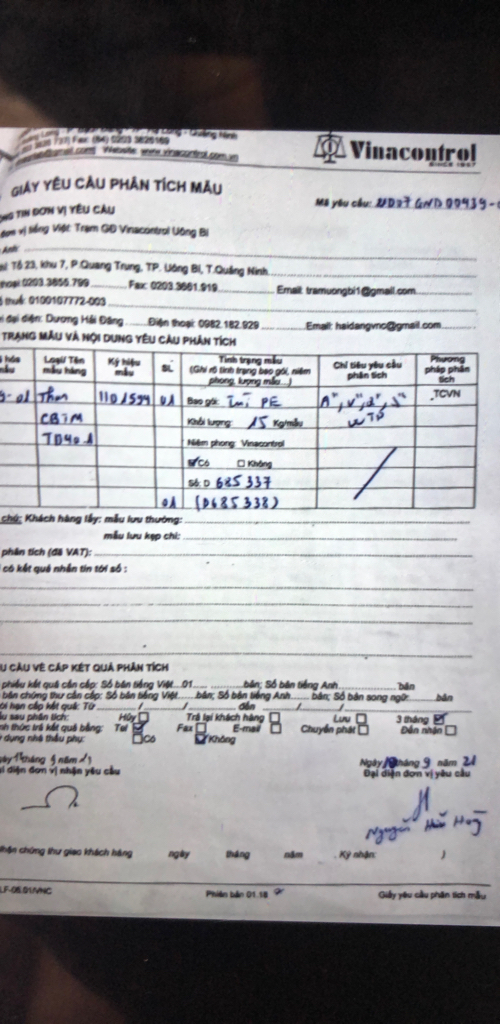 Quảng Ninh
Fax: (84) 0203 3826169
Website: www.vinacontrol.com.vn
Vinacontrol
SINCE 1957
GIẤY YÊU CẦU PHÂN TÍCH MẪU
Mã yêu cầu:
TIN ĐƠN VỊ YÊU CẦU
tiếng Việt: Trạm GĐ Vinacontrol Uông Bí
Anh:
Tổ 23, khu 7, P.Quang Trung, TP. Uông Bí, T.Quảng Ninh
thoại:0203.3855.799 Fax: 0203.3661.919 Email: tramuongbi1@gmail.com
thuế: 0100107772-003
đại diện: Dương Hải Đăng Điện thoại: 0982.182.929 Email: haidangvnc@gmail.com
TRẠNG MẪU VÀ NỘI DUNG YÊU CẦU PHÂN TÍCH
Loại/ Tên mẫu hàng Ký hiệu mẫu SL Tình trạng mẫu (Ghi rõ tình trạng bao gói, niêm phong, lượng mẫu...) Chỉ tiêu yêu cầu phân tích Phương pháp phân tích
Than 01 Bao gói: Túi PE TCVN
Khối lượng: 15 Kg/mẫu
Niêm phong: Vinacontrol
Có Không
Số: D 685337
01 (D685338)
chú: Khách hàng lấy: mẫu lưu thường:
mẫu lưu kẹp chì:
phân tích (đã VAT):
có kết quả nhắn tin tới số:
CẦU VỀ CẤP KẾT QUẢ PHÂN TÍCH
phiếu kết quả cần cấp: Số bản tiếng Việt...01... bản; Số bản tiếng Anh bản
bản chứng thư cần cấp: Số bản tiếng Việt bản; Số bản tiếng Anh bản; Số bản song ngữ bản
hạn cấp kết quả: Từ / / đến / /
sau phân tích: Hủy Trả lại khách hàng Lưu 3 tháng
thức trả kết quả bằng: Tel Fax E-mail Chuyển phát Đến nhận
dụng nhà thầu phụ: Có Không
tháng 9 năm 21 Ngày tháng 9 năm 21
diện đơn vị nhận yêu cầu Đại diện đơn vị yêu cầu
Nguyễn
chứng thư giao khách hàng ngày tháng năm . Ký nhận: )
Phiên bản 01.18 Giấy yêu cầu phân tích mẫu